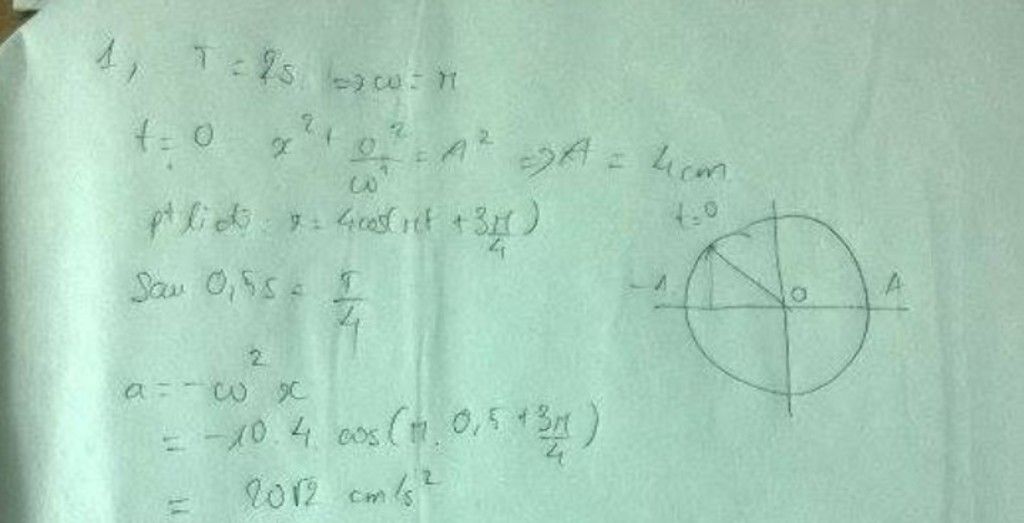 1, T = 2s => ω = π
t = 0 x² + v²/ω² = A² => A = 4cm
pt li độ: x = 4cos(πt + 3π/4)
t=0
Sau 0,5s = T/4
-A O A
a = -ω² x
= -10.4 cos(π. 0,5 + 3π/4)
= 20√2 cm/s²